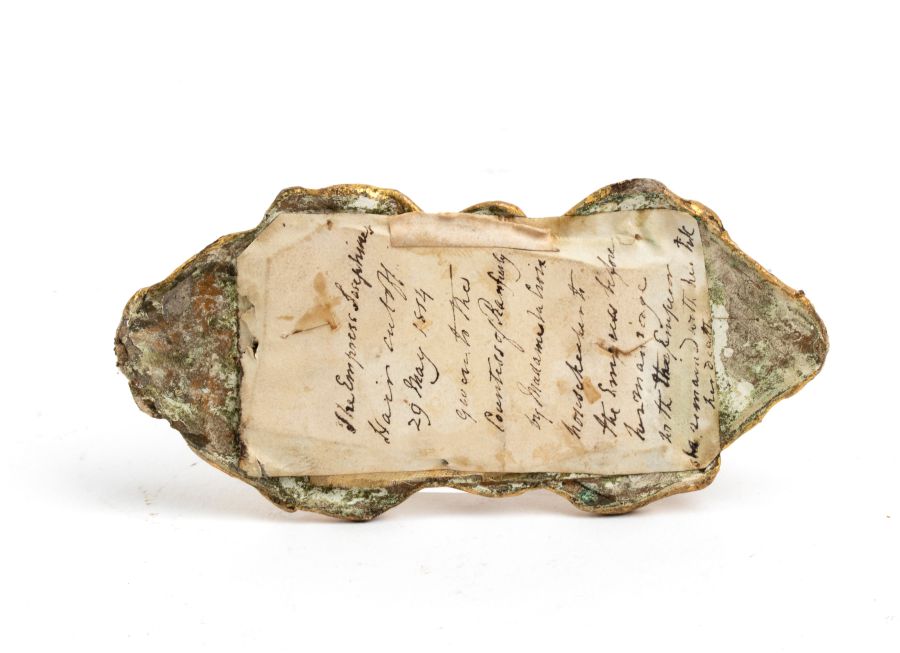 The Empress Josephine
Hair cut off
29 May 1814
given to the
Countess of Ranfurly
by Madame
housekeeper to
the Empress before
her marriage
with the Emperor
she remained with her till
her death